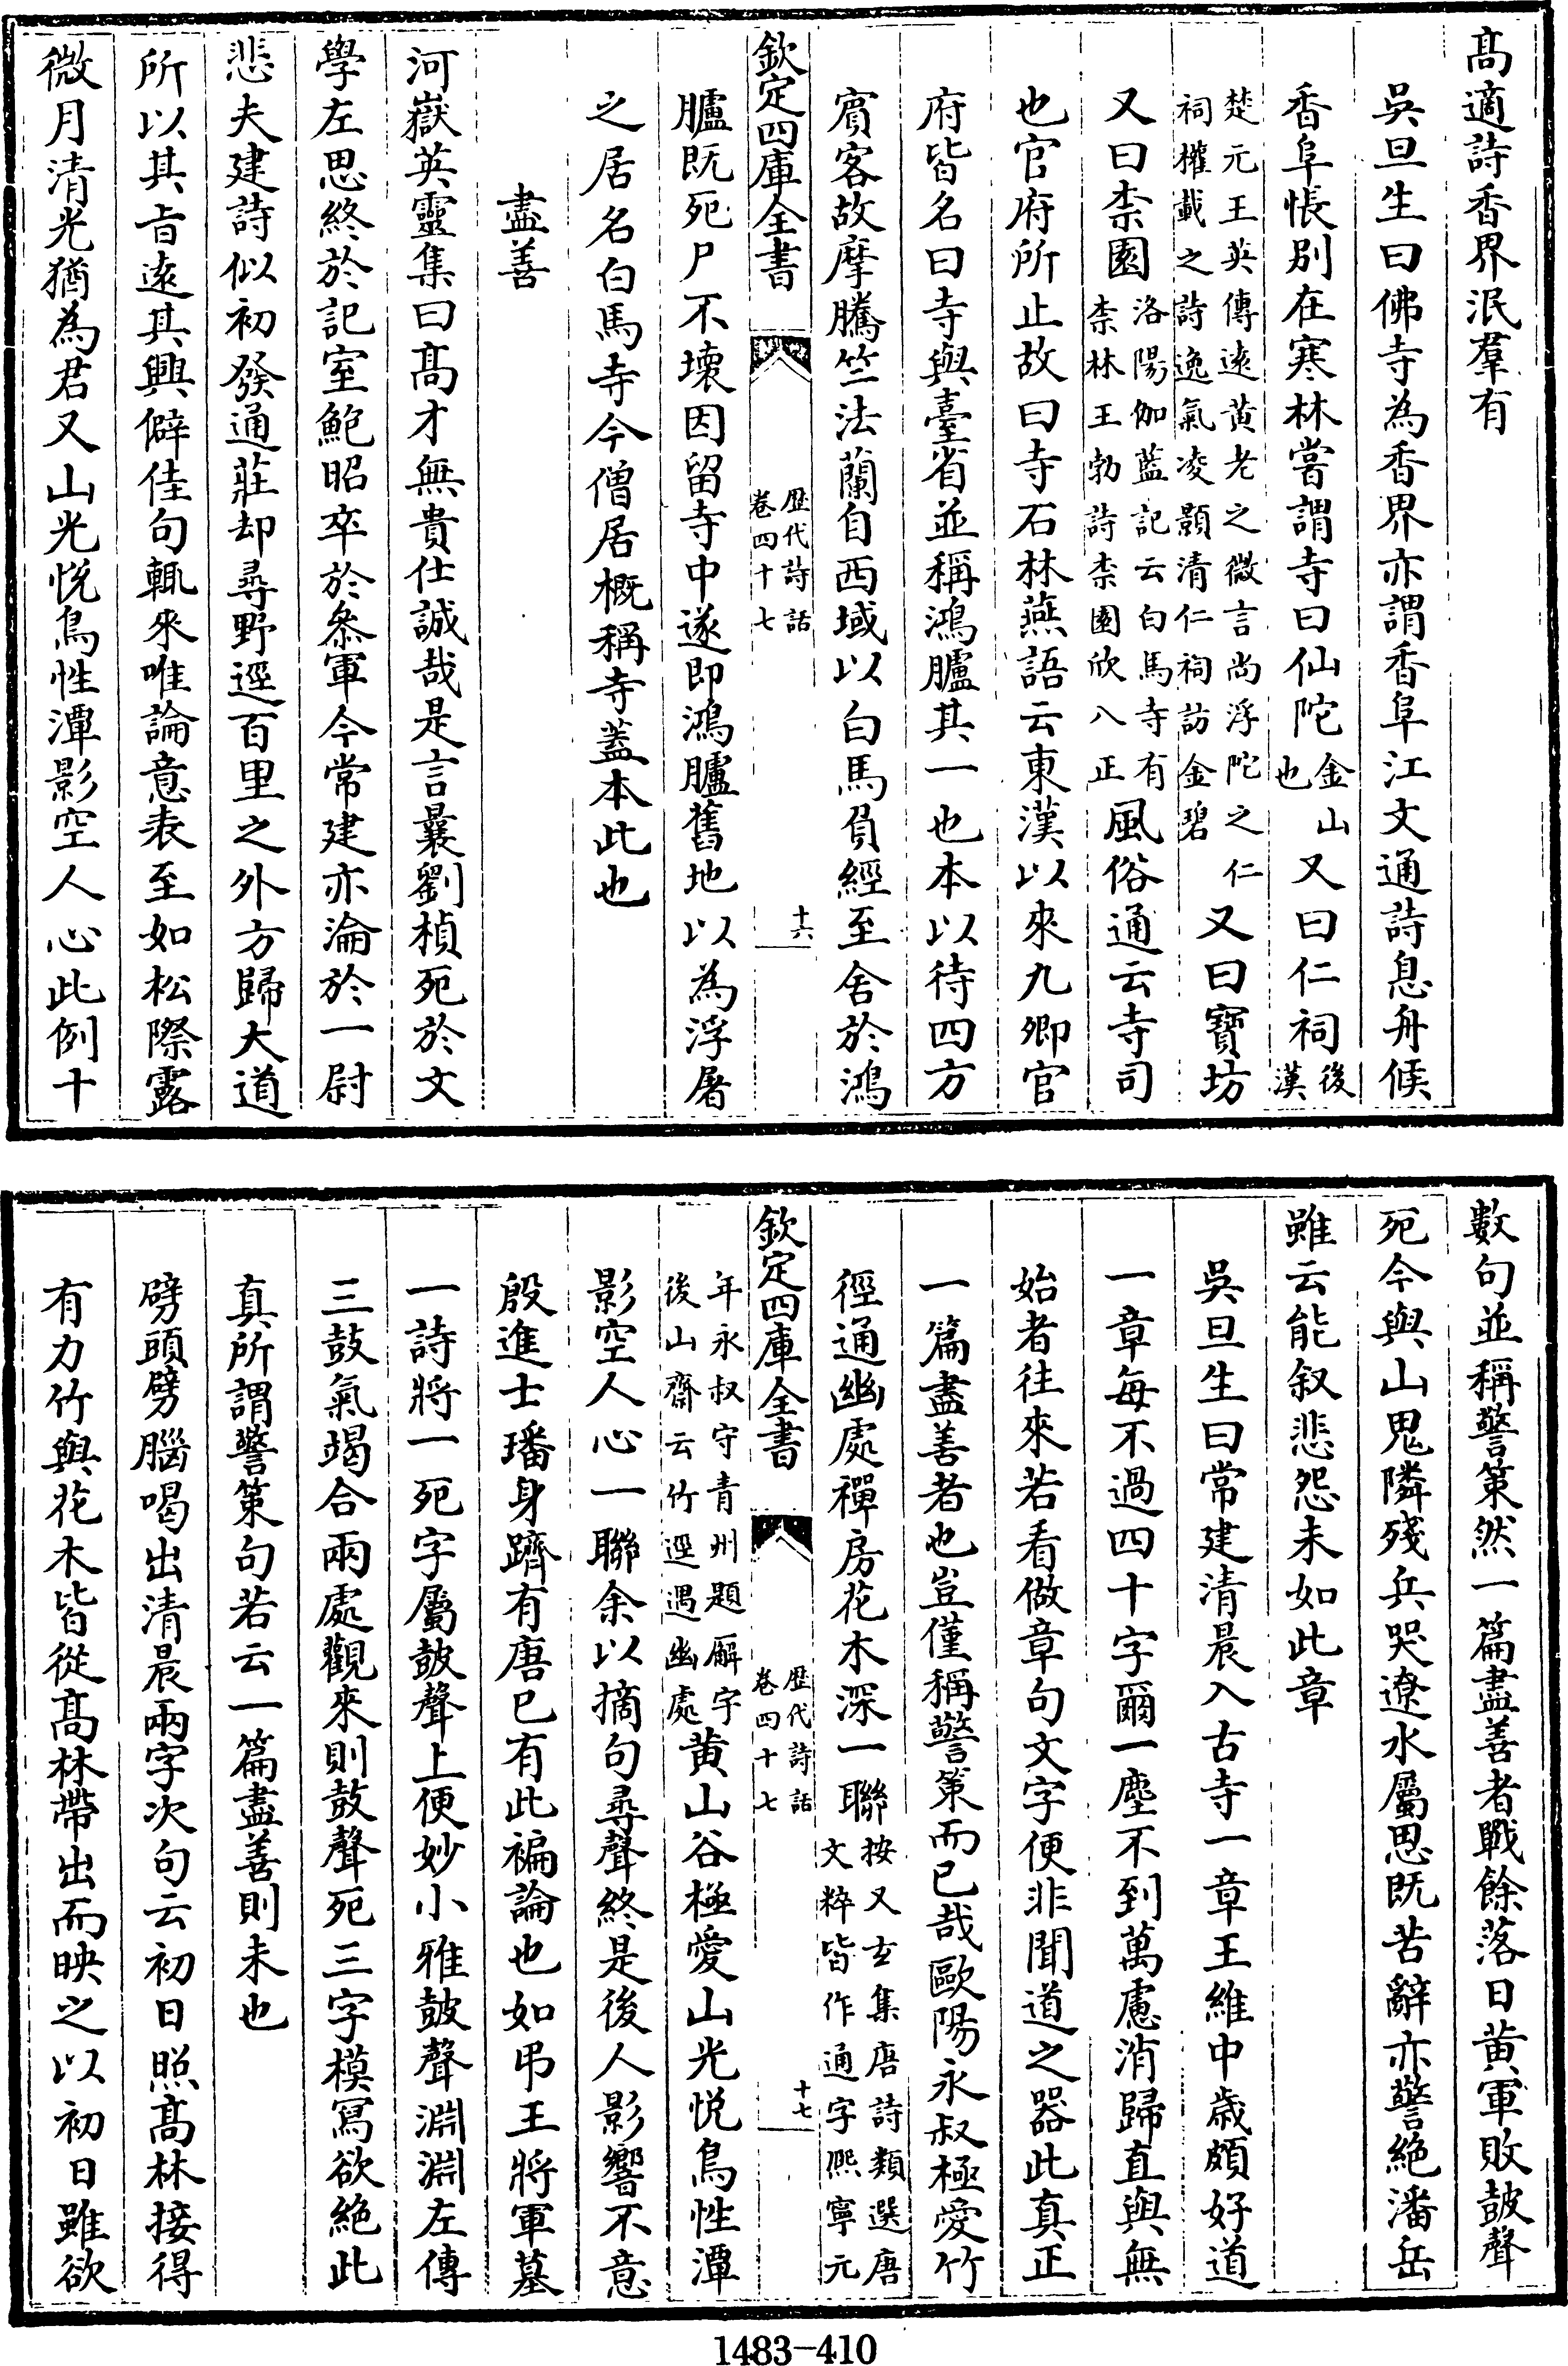 高適詩香界泯羣有
吳旦生曰佛寺為香界亦謂香阜江文通詩息舟候
香阜悵别在寒林嘗謂寺曰仙陀金山也又曰仁祠後漢
楚元王英傳逺黄老之微言尚浮陀之仁祠權載之詩逸氣凌顥清仁祠訪金碧又曰寳坊
又曰柰園洛陽伽藍記云白馬寺有柰林王勃詩柰園欣八正風俗通云寺司
也官府所止故曰寺石林燕語云東漢以來九卿官
府皆名曰寺與臺省並稱鴻臚其一也本以待四方
賔客故摩騰竺法蘭自西域以白馬負經至舍於鴻
欽定四庫全書 歴代詩話 卷四十七 十六
臚既死尸不壊因留寺中遂即鴻臚舊地以為浮屠
之居名白馬寺今僧居概稱寺蓋本此也
盡善
河嶽英靈集曰髙才無貴仕誠哉是言曩劉楨死於文
學左思終於記室鮑昭卒於叅軍今常建亦淪於一尉
悲夫建詩似初發通莊却尋野逕百里之外方歸大道
所以其㫖逺其興僻佳句輒來唯論意表至如松際露
微月清光猶為君又山光悦鳥性潭影空人心此例十
數句並稱警策然一篇盡善者戰餘落日黄軍敗鼓聲
死今與山鬼隣殘兵哭遼水屬思既苦辭亦警絶潘岳
雖云能叙悲怨未如此章
吳旦生曰常建清晨入古寺一章王維中歳頗好道
一章每不過四十字爾一塵不到萬慮消歸直與無
始者往來若看做章句文字便非聞道之器此真正
一篇盡善者也豈僅稱警策而已哉歐陽永叔極愛竹
徑通幽處禪房花木深一聯按又玄集唐詩類選唐文粹皆作通字熈寧元
欽定四庫全書 歴代詩話 卷四十七 十七
年永叔守青州題廨字後山齋云竹逕遇幽處黄山谷極愛山光悦鳥性潭
影空人心一聯余以摘句尋聲終是後人影響不意
殷進士璠身躋有唐已有此褊論也如弔王將軍墓
一詩將一死字屬鼓聲上便妙小雅鼓聲淵淵左傳
三鼓氣竭合兩處觀來則鼓聲死三字模寫欲絶此
真所謂警策句若云一篇盡善則未也
劈頭劈腦喝出清晨兩字次句云初日照髙林接得
有力竹與花木皆從髙林帶出而映之以初日雖欲
1483-410